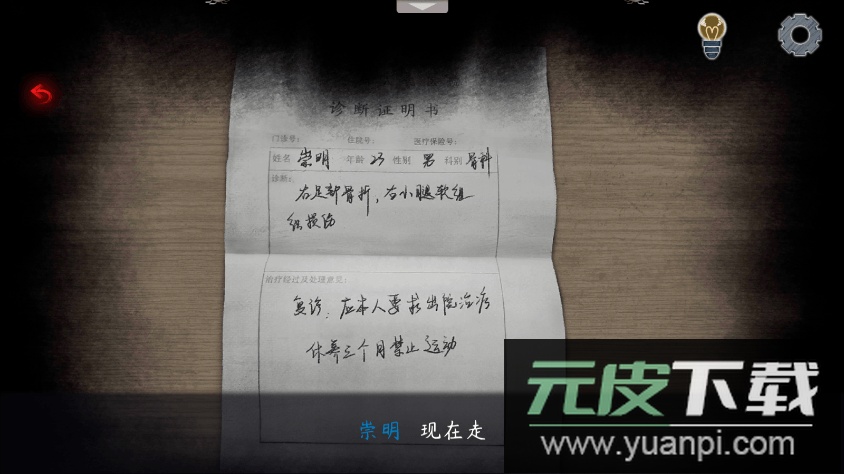 诊断证明书
门诊号: 住院号: 医疗保险号:
姓名 崇明 年龄 23 性别 男 科别 骨科
诊断:
右足部骨折,右小腿软组
织损伤
治疗经过及处理意见:
复诊,应本人要求出院治疗
休养三个月禁止运动
崇明 现在走
元皮下载
www.yuanpi.com